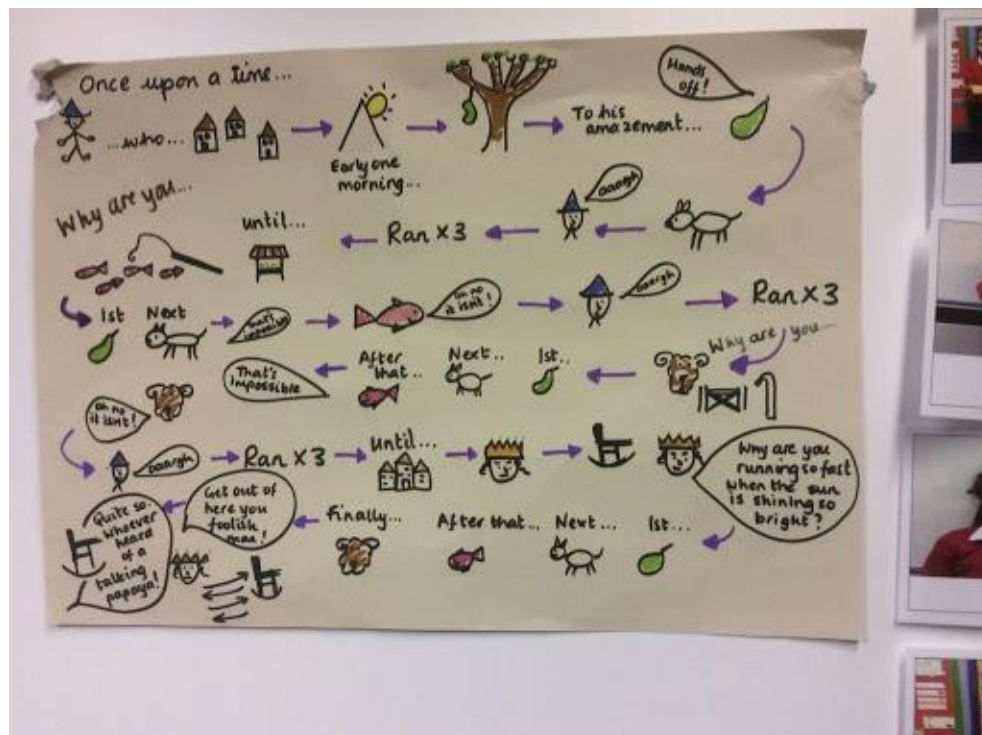 Once upon a time...
Hands
off!
...who...
To his
amazement...
Early one
morning...
Why are you...
until...
Ran x 3
aaargh
1st
Next
That's
impossible
oh no
it isn't!
aaargh
Ran x 3
Why are you...
1st..
Next..
After
that..
That's
impossible
oh no
it isn't!
aaargh
Ran x 3
until...
Why are you
running so fast
when the sun
is shining so
bright?
1st...
Next...
After that...
Finally...
Get out of
here you
foolish
man!
Quite so.
Whoever
heard
of a
talking
papaya!